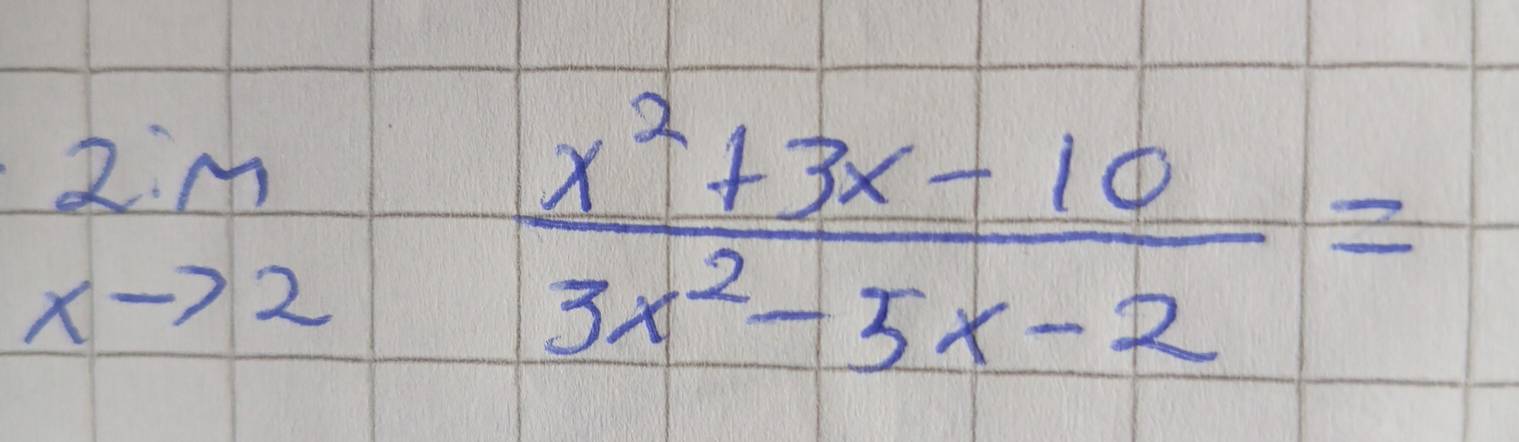 lim x→2 (x² + 3x - 10) / (3x² - 5x - 2) =